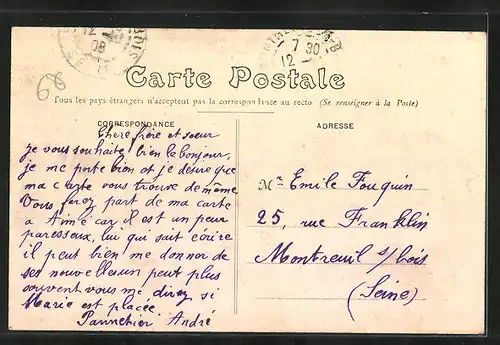 12
08
7 30
12
68
Carte Postale
Tous les pays étrangers n'acceptent pas la correspondance au recto (Se renseigner à la Poste)
CORRESPONDANCE
Chere frère et soeur
je vous souhaite bien le bonjour,
je me porte bien et je désire que
ma carte vous trouve de même
Vous ferez part de ma carte
a Aimé car il est un peu
paresseux, lui qui sait écrire
il peut bien me donner de
ses nouvelles un peut plus
souvent vous me direz si
Marie est placée
Pannetier André
ADRESSE
Mr Emile Fouquin
25, rue Franklin
Montreuil s/bois
(Seine)